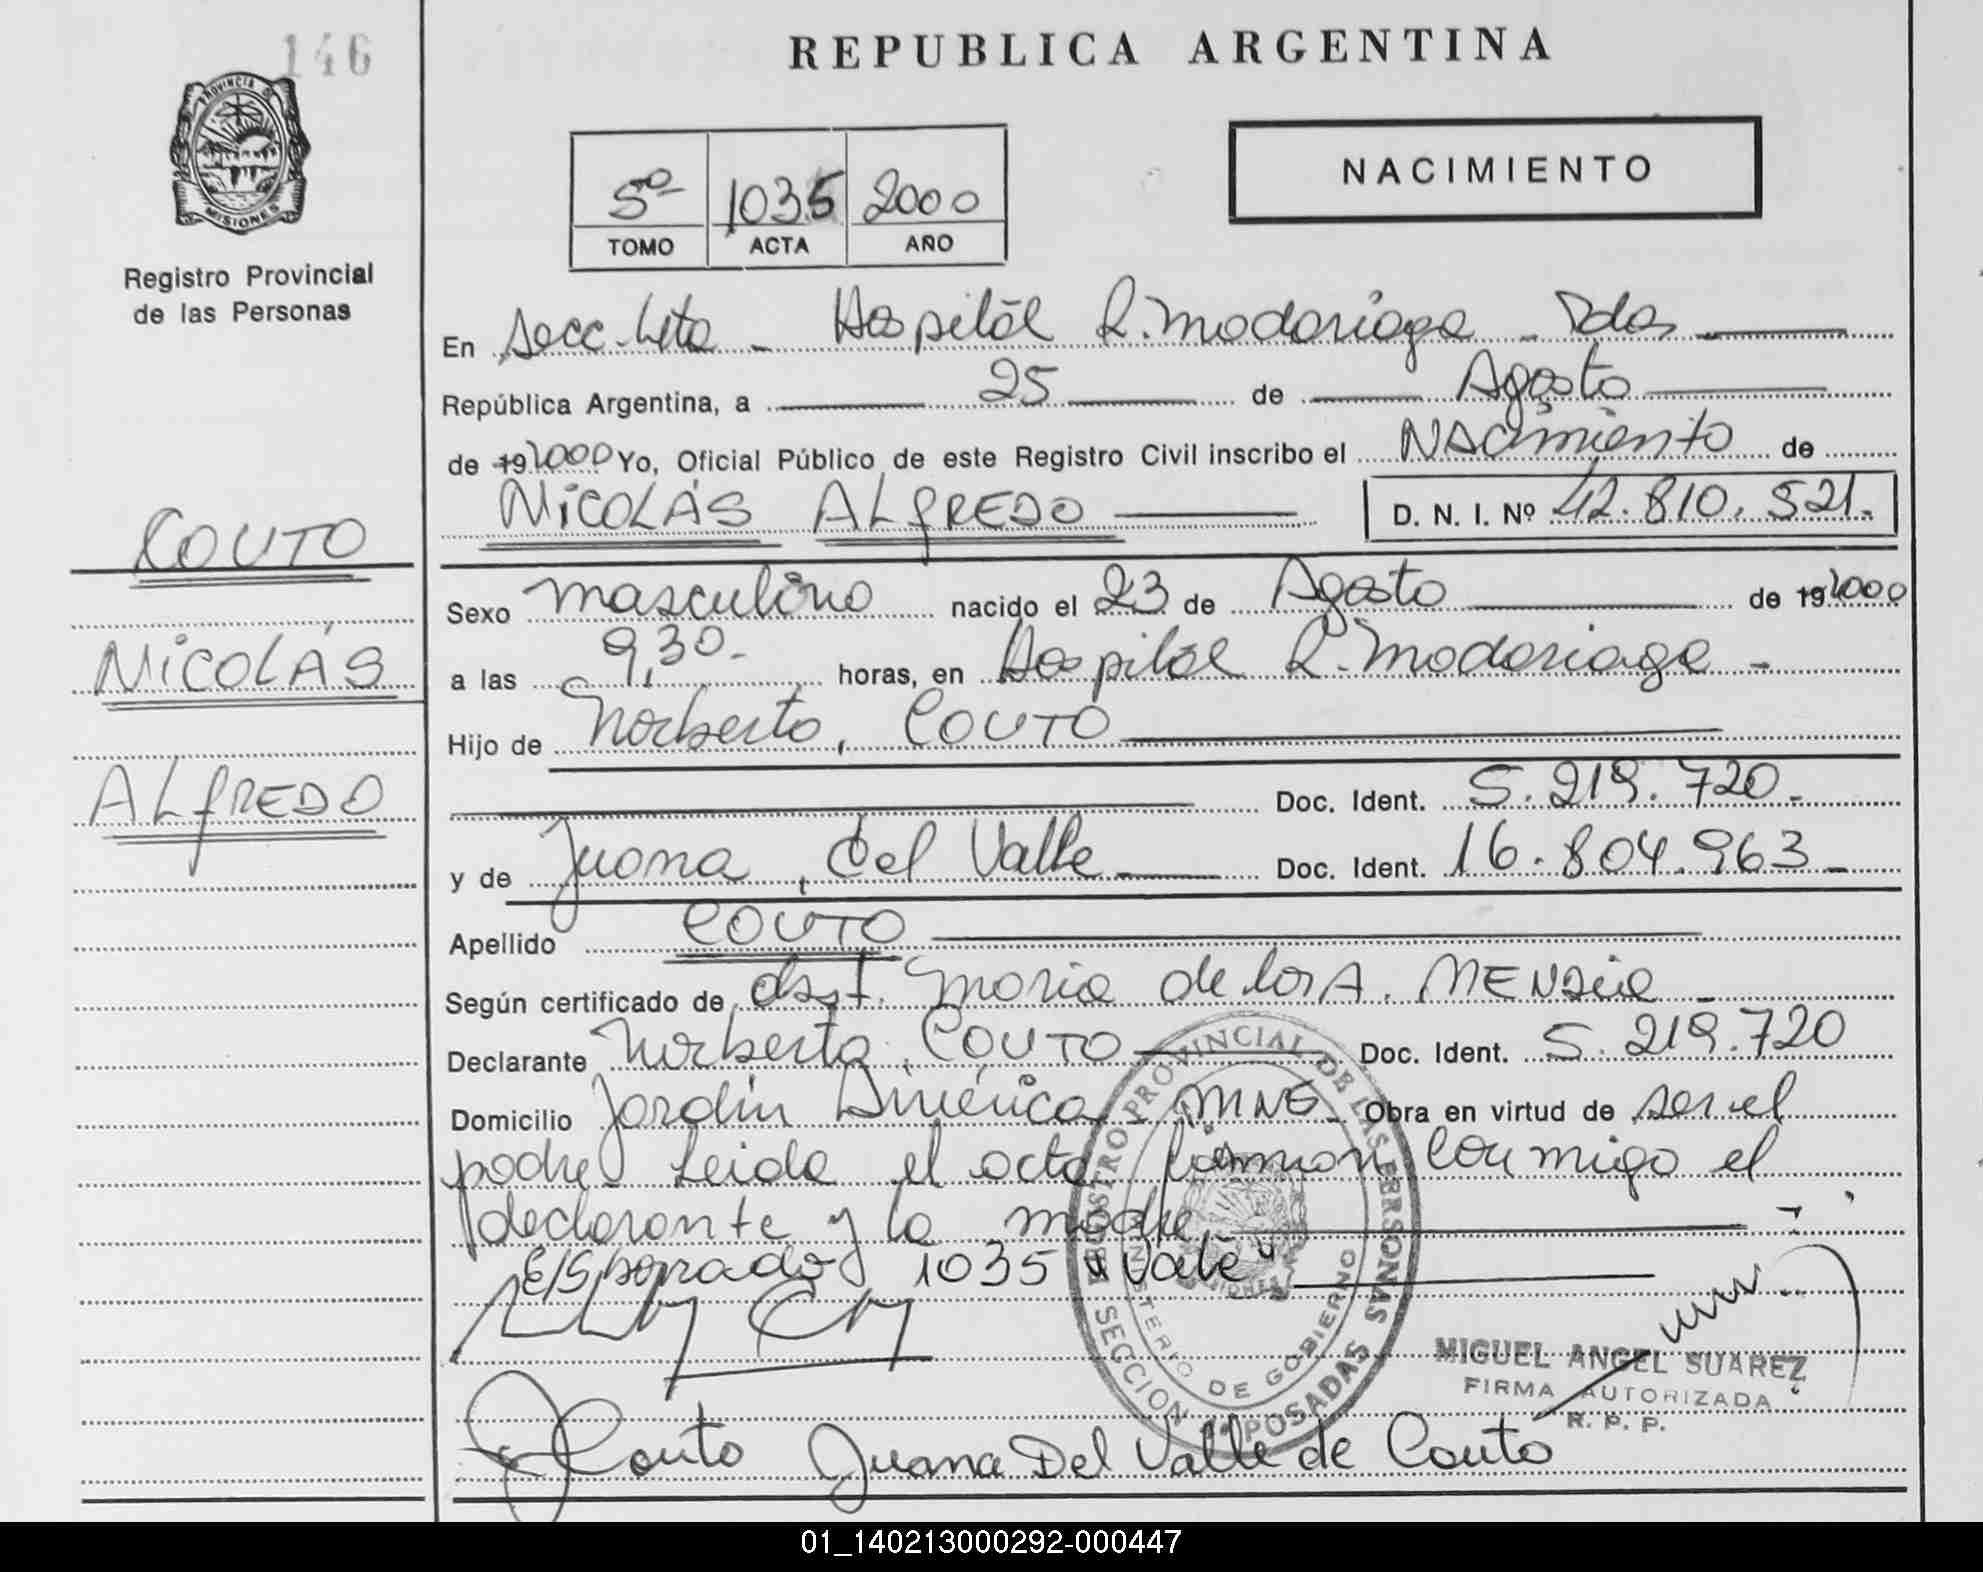 146
REPUBLICA ARGENTINA
PROVINCIA DE
MISIONES
Registro Provincial
de las Personas
5º 1035 2000
TOMO ACTA AÑO
NACIMIENTO
En Secc. Hospital R. Madariaga - Pdas
República Argentina, a 25 de Agosto
de 19 2000 Yo, Oficial Público de este Registro Civil inscribo el Nacimiento de
NICOLÁS ALFREDO D. N. I. Nº 42.810.521.
COUTO
NICOLÁS
ALFREDO
Sexo masculino nacido el 23 de Agosto de 19 2000
a las 9,30.- horas, en Hospital R. Madariaga -
Hijo de Norberto, COUTO
Doc. Ident. 5.219.720.-
y de Juana, del Valle Doc. Ident. 16.804.963.-
Apellido COUTO
Según certificado de obst. Maria de los A. MENDEZ
Declarante Norberto, COUTO Doc. Ident. 5.219.720
Domicilio Jardín América, MNES Obra en virtud de ser el
padre Leida el acta firman conmigo el
declarante y la madre
E/S borrado 1035 "Vale"
REGISTRO PROVINCIAL DE LAS PERSONAS
MINISTERIO DE GOBIERNO
SECCION POSADAS
MIGUEL ANGEL SUAREZ
FIRMA AUTORIZADA
R. P. P.
Couto Juana Del Valle de Couto
01_140213000292-000447